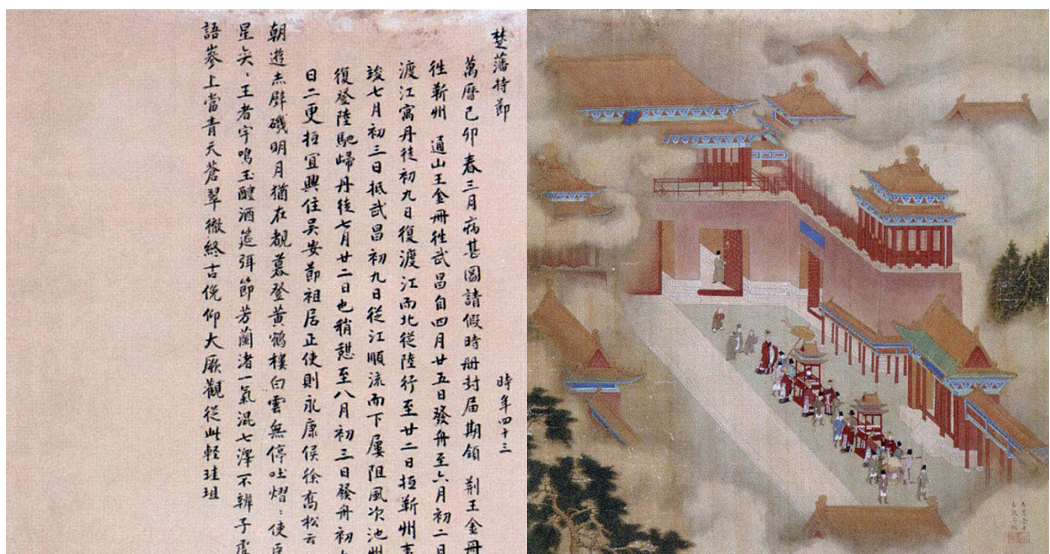 楚藩持節 時年四十三
萬曆己卯春三月病甚圖請假時冊封屆期領 荊王金冊
往蘄州 通山王金冊往武昌自四月廿五日發舟至六月初二日
渡江寓丹徒初九日復渡江而北從陸行至廿二日抵蘄州事
竣七月初三日抵武昌初九日從江順流而下屢阻風次池州
復登陸馳歸丹徒七月廿二日也稍憩至八月初三日發舟初
日二更抵宜興住吳安節祖居正使則永康侯徐喬松云
朝遊赤壁磯明月猶在覩暮登黃鶴樓白雲無停吐熠、使臣
星奕、王者宇鳴玉醴酒筵弭節芳蘭渚一氣混七澤不辨子虛
語參上當青天蒼翠徹終古俛仰大厥觀從此輕珪組